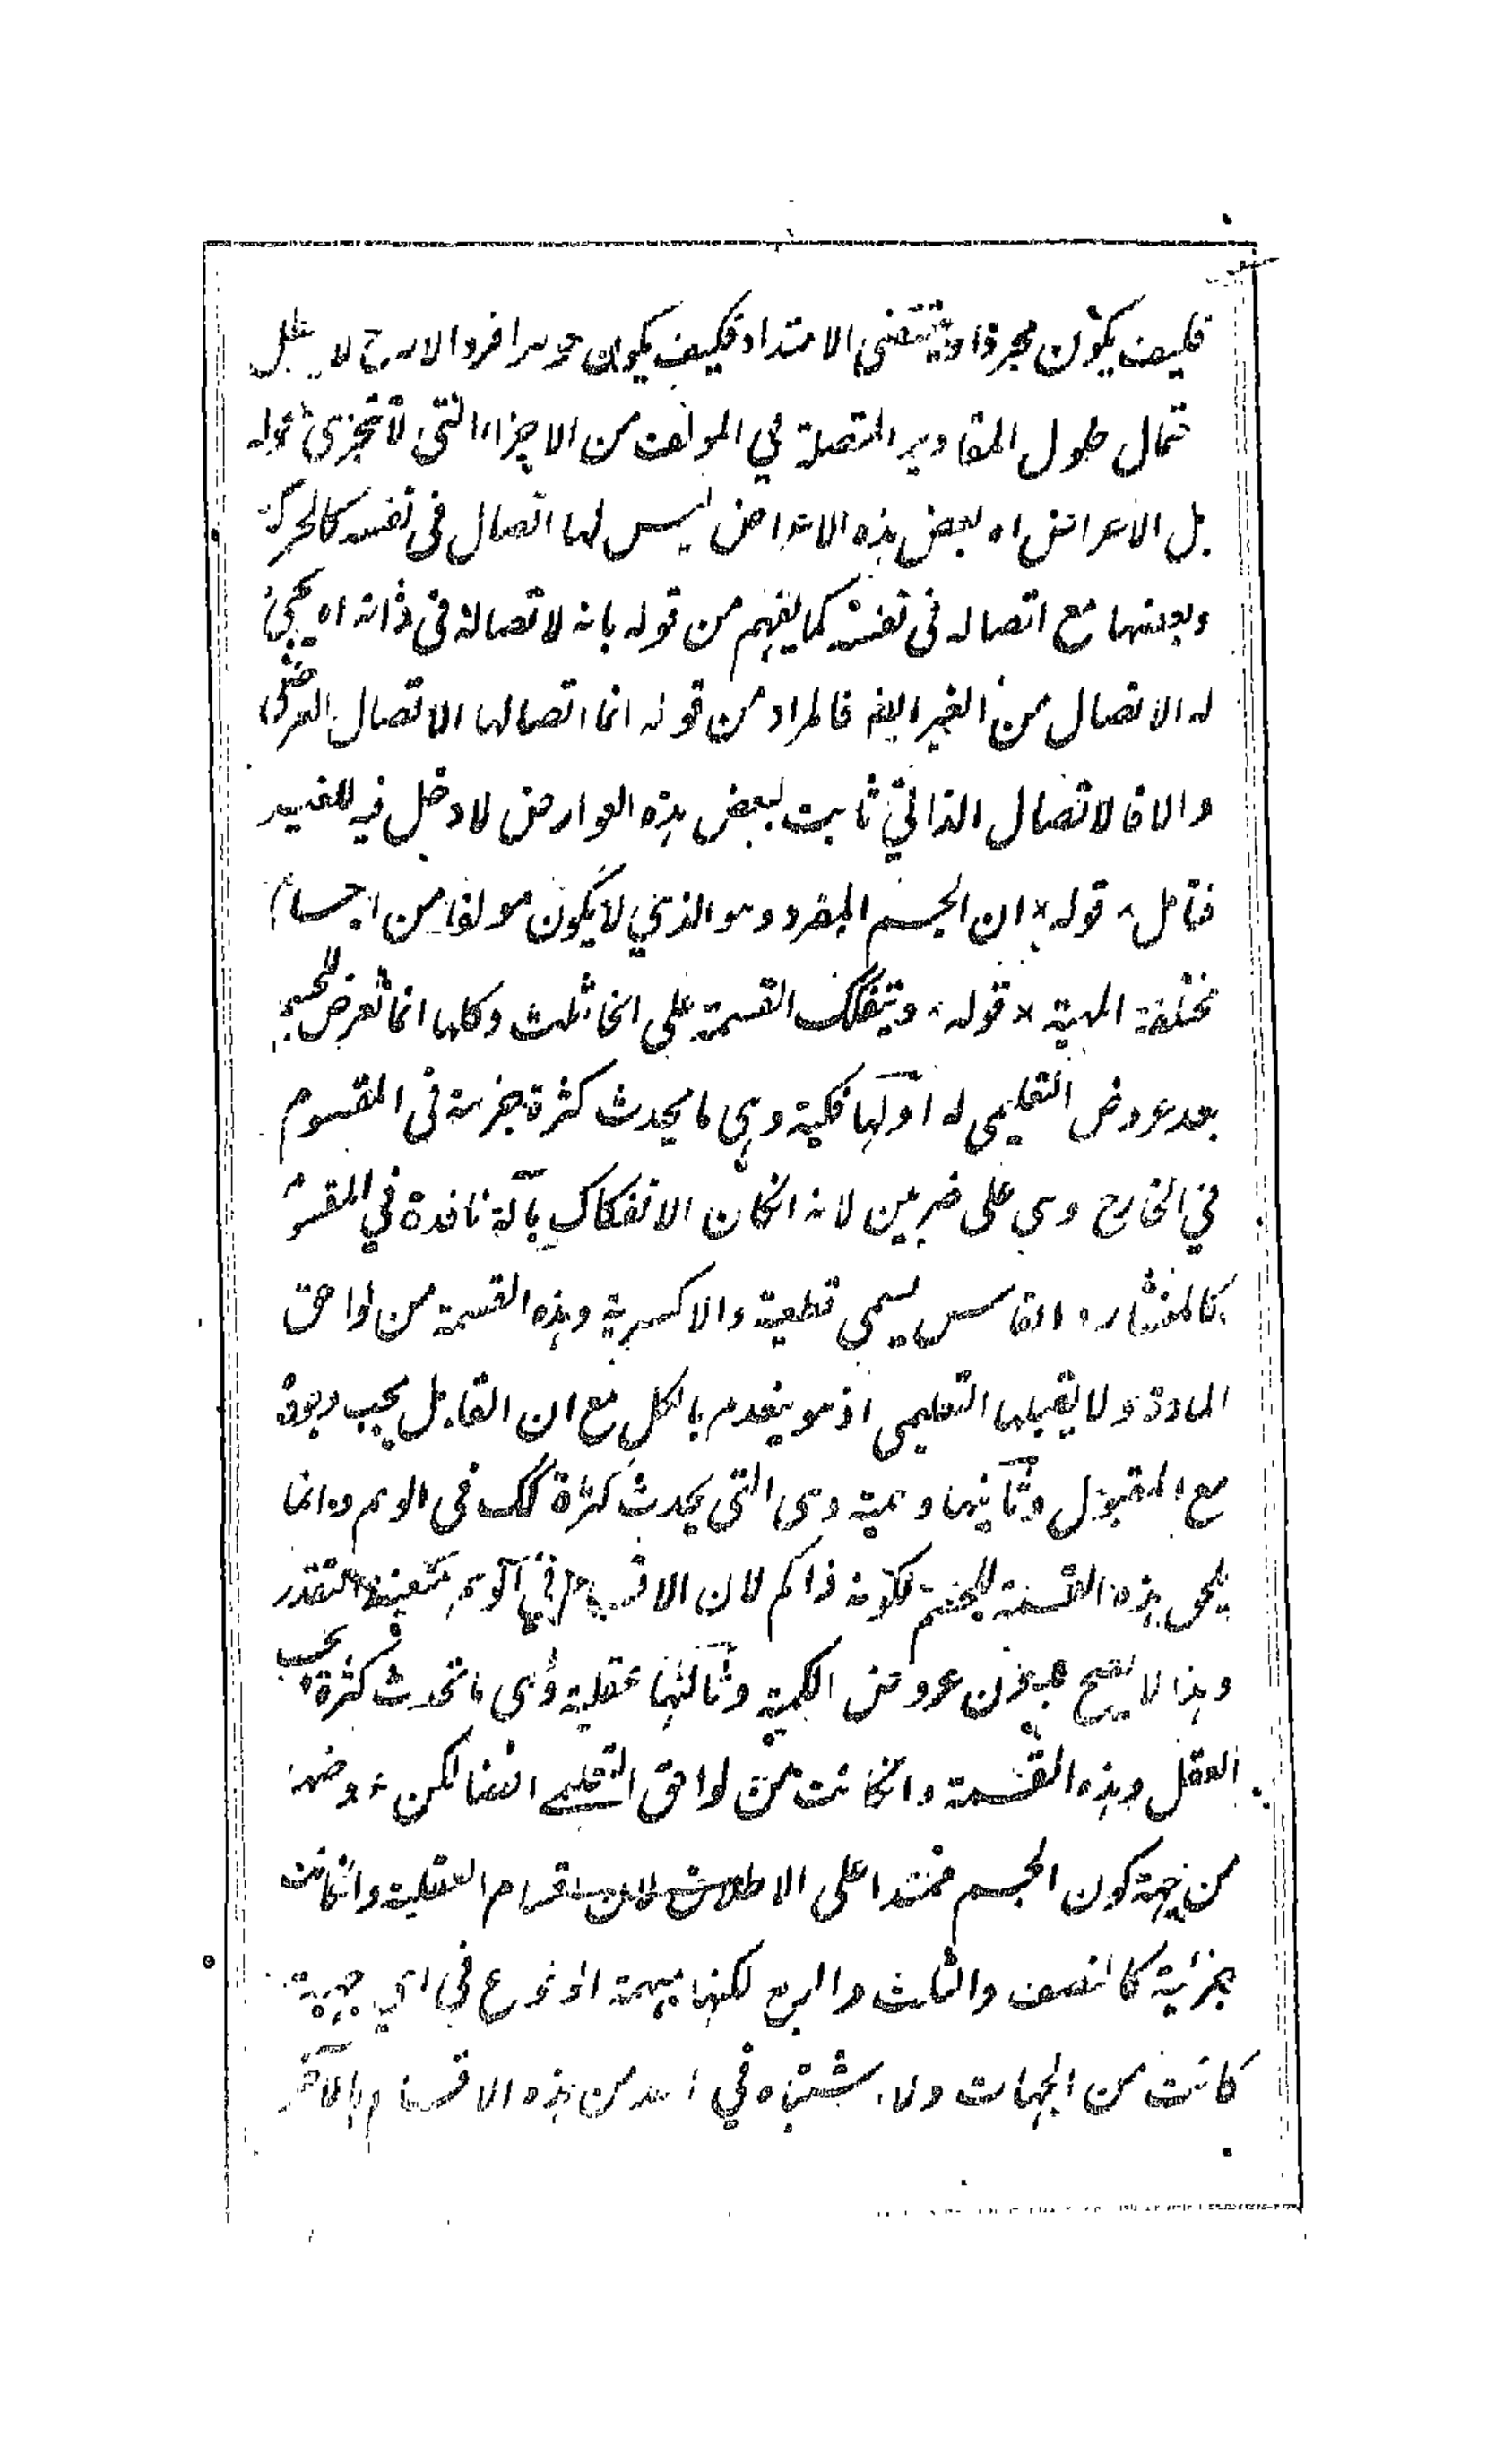 فكيف يكون مجردا وقد يقتضى الامتداد فكيف يكون جوهرا فردا لا
حلول المقادير المتصلة في المولف من الاجزاء التى لا تتجزى قوله
بل الاعراض اه بعض هذه الاعراض ليس لها اتصال فى نفسه كالحركة
وبعضها مع اتصاله فى نفسه كما يفهم من قوله بانه لا تصاله فى ذاته اه يجئ
له الاتصال من الغير ايضا فالمراد من قوله انما اتصالها الاتصال العرضى
والا فالاتصال الذاتي ثابت لبعض هذه العوارض لا دخل فيه للغير
فتامل قوله ان الجسم المفرد وهو الذي لا يكون مولفا من اجسام
مختلفة المهية قوله وينفك القسمة على انحاء ثلث وكلها انما تعرض للجسم
بعد عروض التعليمى له اولها فكية وهى ما يحدث كثرة جزئية فى المقسوم
في الخارج وهى على ضربين لانه انكان الانفكاك بآلة نافذة في المقسوم
كالمنشار والفاس يسمى قطعية والا كسرية وهذه القسمة من لواحق
المادة ولا يقبلها التعليمى اذ هو ينعدم بالكل مع ان القابل يجب وجوده
مع المقبول وثانيها وهمية وهى التى يحدث كثرة كك فى الوهم وانما
يلحق هذه القسمة للجسم لكونه ذا كم لان الاقسام فى الوهم متعينة التقدر
وهذا لا يصح بدون عروض الكمية وثالثها عقلية وهى ما تحدث كثرة بحسب
العقل وهذه القسمة وانكانت من لواحق التعليمى ايضا لكن عروضه
من جهة كون الجسم ممتدا على الاطلاق لان اقسام العقلية وانكانت
جزئية كالنصف والثلث والربع لكنها مبهمة الوقوع في اي جهة
كانت من الجهات ولا اشتباه في احد من هذه الاقسام بالآخر